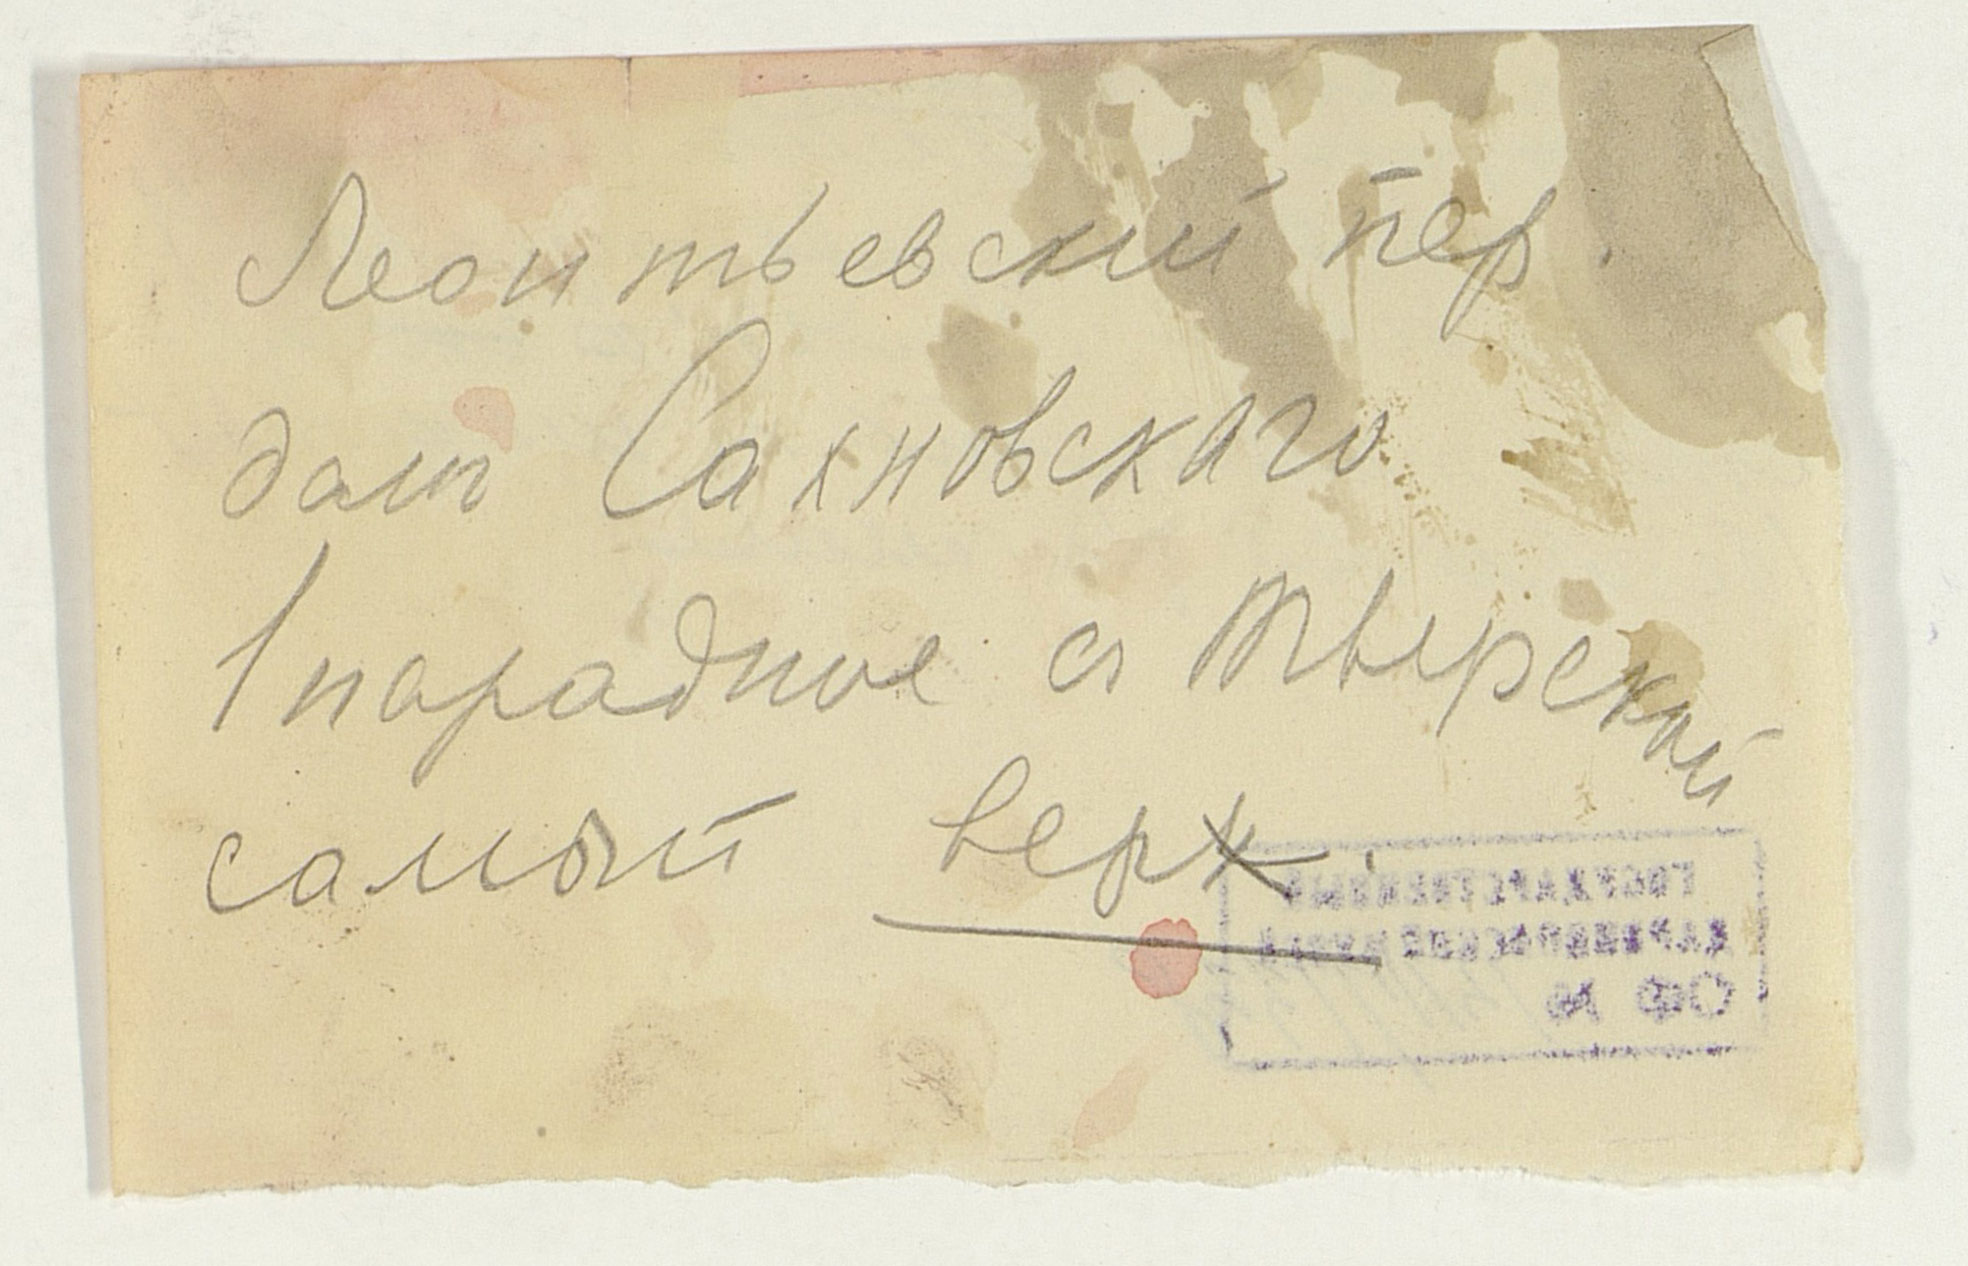 Леонтьевский пер.
дом Сахновскаго
1 парадное с Тверской
самый верх.
ГОСУДАРСТВЕННЫЙ
ОФ №